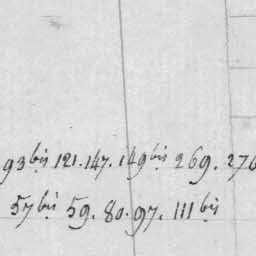 93bis 121. 147. 149bis 269. 276
57bis 59. 80. 97. 111bis